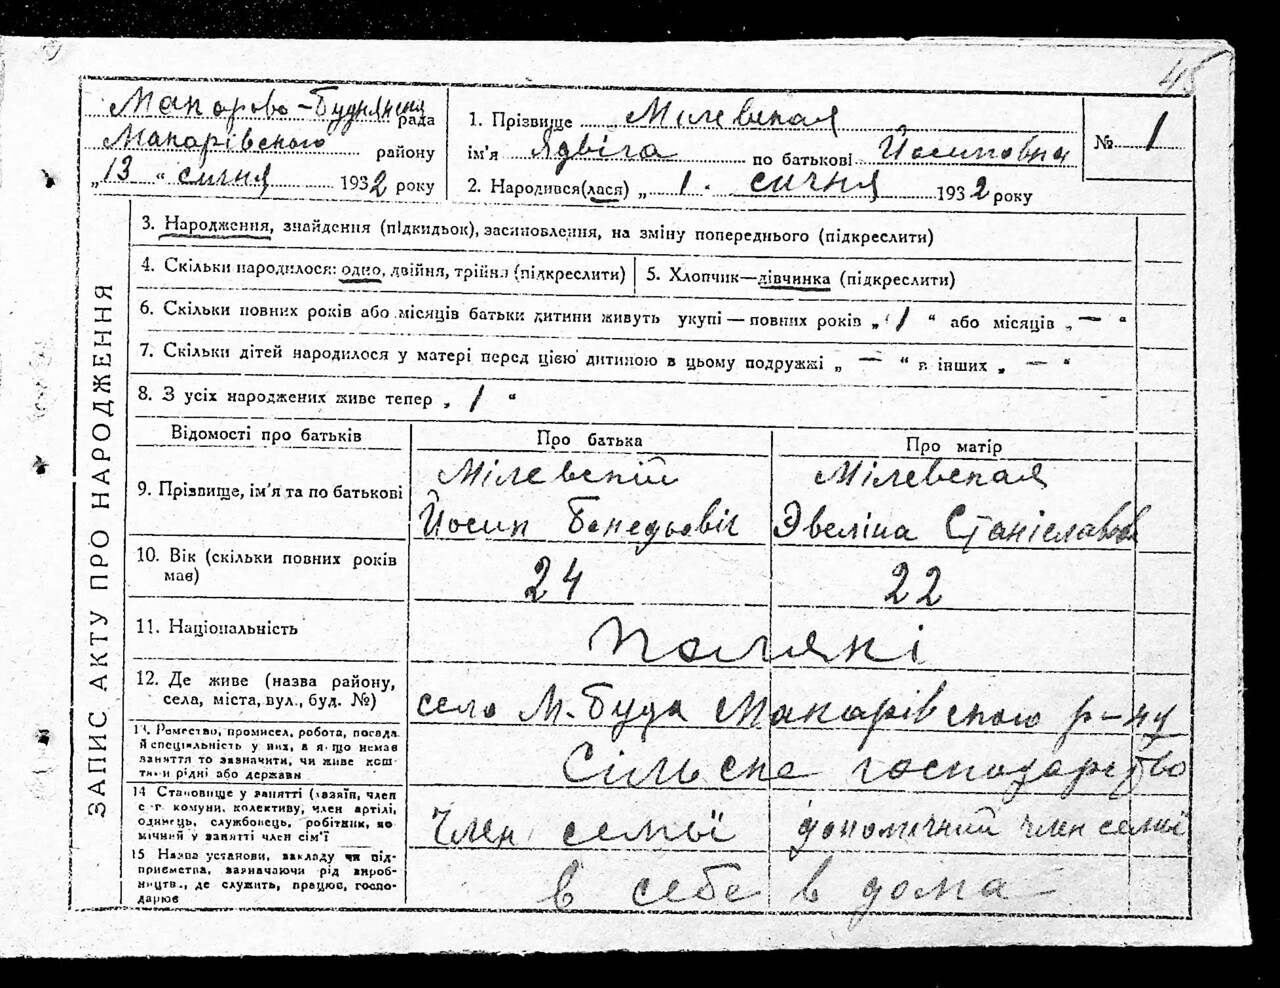 45
Макарово-Буднянська рада
Макарівського району
„13 “ січня 1932 року
1. Прізвище Мілевская
ім'я Ядвіга по батькові Йосиповна
2. Народився(лася) „ 1. січня 1932 року
№ 1
ЗАПИС АКТУ ПРО НАРОДЖЕННЯ
3. Народження, знайдення (підкидьок), засиновлення, на зміну попереднього (підкреслити)
4. Скільки народилося: одно, двійня, трійня (підкреслити)
5. Хлопчик—дівчинка (підкреслити)
6. Скільки повних років або місяців батьки дитини живуть укупі — повних років „ 1 “ або місяців „ — “
7. Скільки дітей народилося у матері перед цією дитиною в цьому подружжі „ — “ в інших „ — “
8. З усіх народжених живе тепер „ 1 “
Відомості про батьків
Про батька
Про матір
9. Прізвище, ім'я та по батькові
Мілевскій
Йосип
Мілевская
Эвеліна Станіславов
10. Вік (скільки повних років має)
24
22
11. Національність
Поляні
12. Де живе (назва району,
села, міста, вул., буд. №)
село М-Буда Макарівского р-ну
13. Ремество, промисел, робота, посада
й спеціяльність у них, а якщо немає
заняття то зазначити, чи живе кош-
тами рідні або держави
Сільске господарство
14 Становище у занятті (хазяїн, член
с.-г. комуни, колективу, член артілі,
одинець, службовець, робітник, по
мічний у занятті член сім'ї
Член семьї
допомічний член семьї
15 Назва установи, закладу чи під-
приємства, зазначаючи рід вироб-
ництв., де служить, працює, госпо-
дарює
в себе в дома